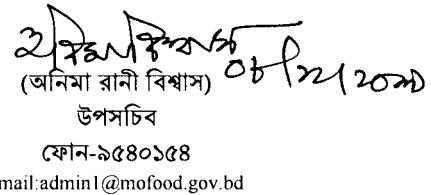 (অনিমা রানী বিশ্বাস)
উপসচিব
ফোন-৯৫৪০১৫৪
mail:admin1@mofood.gov.bd